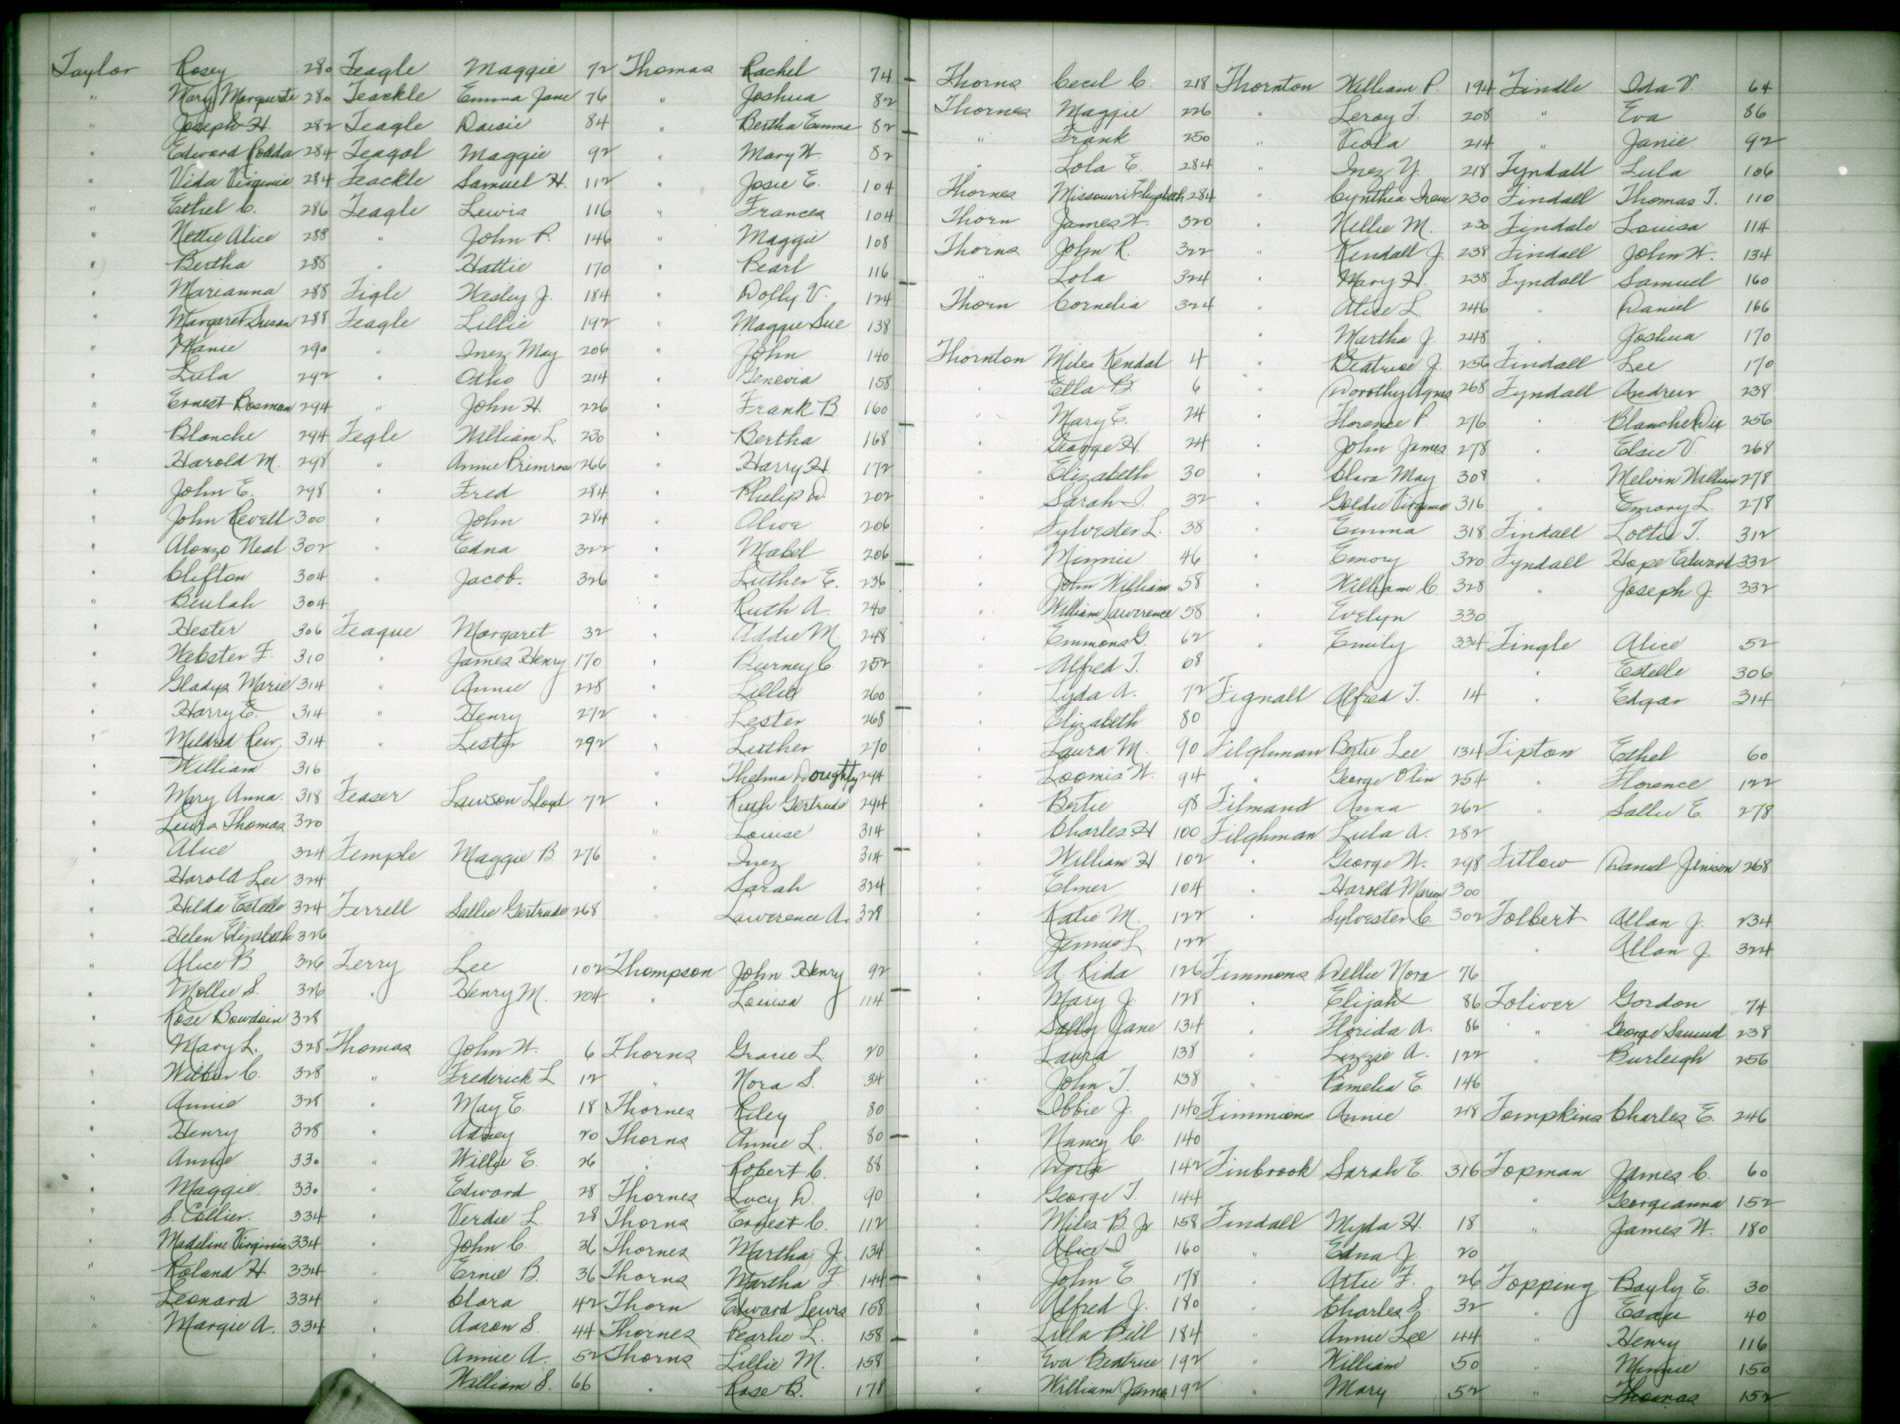 Taylor Rosey 280
" Mary Marquerite 280
" Joseph H. 282
" Edward Rodda 284
" Vida Virginia 284
" Ethel C. 286
" Nettie Alice 288
" Bertha 288
" Marianna 288
" Margaret Susan 288
" Mamie 290
" Lula 292
" Ernest Bosman 294
" Blanche 294
" Harold M. 298
" John E. 298
" John Revell 300
" Alonzo Neal 302
" Clifton 304
" Beulah 304
" Hester 306
" Webster F. 310
" Gladys Marie 314
" Harry E. 314
" Mildred Rew 314
" William 316
" Mary Anna 318
" Lewis Thomas 320
" Alice 324
" Harold Lee 324
" Hilda Estelle 324
" Helen Elizabeth 326
" Alice B 326
" Mollie S. 326
" Rose Bowdoin 328
" Mary L. 328
" Wilbur C. 328
" Annie 328
" Henry 328
" Annie 330
" Maggie 330
" S. Collier 334
" Madeline Virginia 334
" Roland H. 334
" Leonard 334
" Margie A. 334
Teagle Maggie 72
Teackle Emma Jane 76
Teagle Daisie 84
Teagal Maggie 92
Teackle Samuel H. 112
Teagle Lewis 116
" John R. 146
" Hattie 170
Tigle Wesley J. 184
Teagle Lillie 192
" Inez May 206
" Otho 214
" John H. 226
Tegle William L. 230
" Annie Primrose 266
" Fred 284
" John 284
" Edna 322
" Jacob. 326
Teague Margaret 32
" James Henry 170
" Annie 228
" Henry 272
" Lester 292
Teaser Lawson Lloyd 72
Temple Maggie B 276
Terrell Sallie Gertrude 268
Terry Lee 102
" Henry M. 204
Thomas John W. 6
" Frederick L 12
" May E. 18
" Adney 20
" Willie E. 26
" Edward 28
" Verdie L. 28
" John C. 36
" Ernie B. 36
" Clara 42
" Aaron S. 44
" Annie A. 52
" William S. 66
Thomas Rachel 74
" Joshua 82
" Bertha Emma 82
" Mary W. 82
" Josie E. 104
" Frances 104
" Maggie 108
" Pearl 116
" Dolly V. 124
" Maggie Sue 138
" John 140
" Genevia 158
" Frank B 160
" Bertha 168
" Harry H. 172
" Philip D. 202
" Alice 206
" Mabel 206
" Luther E. 236
" Ruth A. 240
" Addie M. 248
" Burney C 252
" Lillie 260
" Lester 268
" Luther 270
" Thelma Doughty 294
" Ruth Gertrude 294
" Louise 314
" Inez 314
" Sarah 324
" Lawerence A. 328
Thompson John Henry 92
" Louisa 114
Thorns Gracie L. 20
" Nora S. 34
Thornes Riley 80
Thorns Annie L. 80
" Robert C. 88
Thornes Lucy D. 90
Thorns Ernest C. 112
Thornes Martha J. 134
Thorns Martha F 144
Thorn Edward Lewis 158
Thornes Pearlie L. 158
Thorns Lillie M. 158
" Rose B. 178
Thorns Cecil C. 218
Thornes Maggie 226
" Frank 250
" Lola E. 284
Thornes Missouri Elizabeth 284
Thorn James W. 320
Thorns John R. 322
" Lola 324
Thorn Cornelia 324
Thornton Miles Kendal 4
" Ella B. 6
" Mary E. 24
" George H. 24
" Elizabeth 30
" Sarah I. 32
" Sylvester L. 38
" Minnie 46
" John William 58
" William Lawerence 58
" Emmons G. 62
" Alfred T. 68
" Lyda A. 72
" Elizabeth 80
" Laura M. 90
" Loomis W. 94
" Bertie 98
" Charles H 100
" William H 102
" Elmer 104
" Katie M. 122
" Jennie L. 122
" A. Rida 126
" Mary J. 128
" Sally Jane 134
" Laura 138
" John T. 138
" Obbie J. 140
" Nancy C. 140
" Dora 142
" George T. 144
" Miles B. Jr 158
" Alice I 160
" John E 178
" Alfred J. 180
" Lula Bill 184
" Eva Beatrice 192
" William James 192
Thornton William P 194
" Leroy T. 208
" Viola 214
" Inez Y. 218
" Cynthia Irene 230
" Nellie M. 230
" Kendall J. 238
" Mary H. 238
" Alice L. 246
" Martha J. 248
" Beatrice J. 256
" Dorothy Agnes 268
" Florence P. 276
" John James 278
" Clara May 308
" Goldie Virginia 316
" Emma 318
" Emory 320
" William C. 328
" Evelyn 330
" Emily 334
Tignall Alfred T. 14
Tilghman Bertie Lee 134
" George Olin 254
Tilmand Anna 262
Tilghman Lula A. 282
" George W. 298
" Harold Marion 300
" Sylvester C. 302
Timmons Dellie Nora 76
" Elijah 86
" Florida A. 86
" Lizzie A. 122
" Pamelia E. 146
Timmions Annie 218
Tinbrook Sarah E. 316
Tindall Myda H. 18
" Edna J. 20
" Artie F. 26
" Charles S. 32
" Annie Lee 44
" William 50
" Mary 52
Tindle Ida V. 64
" Eva 86
" Janie 92
Tyndall Lula 106
Tindall Thomas T. 110
Tindale Louisa 114
Tindall John W. 134
Tyndall Samuel 160
" Daniel 166
" Joshua 170
Tindall Lee 170
Tyndall Andrew 238
" Blanche Dix 256
" Elsie V. 268
" Melvin William 278
" Emory L. 278
Tindall Lottie T. 312
Tyndall Hope Edward 332
" Joseph J. 332
Tingle Alice 52
" Estelle 306
" Edgar 314
Tipton Ethel 60
" Florence 122
" Sallie E. 278
Titlow Daniel Jenison 268
Tolbert Allan J. 234
" Allan J. 324
Toliver Gordon 74
" George Samuel 238
" Burleigh 256
Tompkins Charles E. 246
Topman James C. 60
" Georgianna 152
" James W. 180
Topping Bayly E. 30
" Essie 40
" Henry 116
" Minnie 150
" Thomas 152